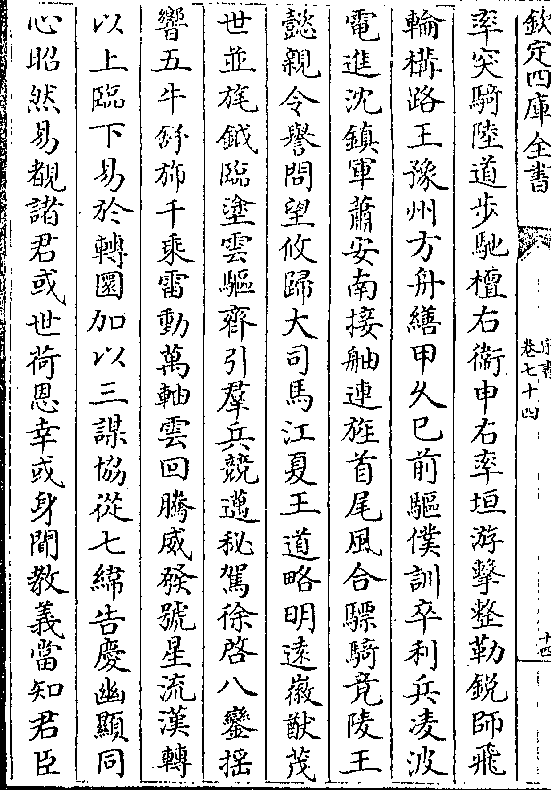 欽定四庫全書
卷七十四
十四
率突騎陸道步馳檀右衞申右率垣游擊整勒銳師飛
輪構路王豫州方舟繕甲久已前驅僕訓卒利兵凌波
電進沈鎮軍蕭安南接舳連旌首尾風合驃騎竟陵王
懿親令譽問望攸歸大司馬江夏王道略明遠徽猷茂
世並旄鉞臨塗雲驅齊引羣兵競邁秘駕徐啓八鑾揺
響五牛舒斾千乘雷動萬軸雲回騰威發號星流漢轉
以上臨下易於轉圜加以三謀協從七緯告慶幽顯同
心昭然易覩諸君或世荷恩幸或身聞教義當知君臣